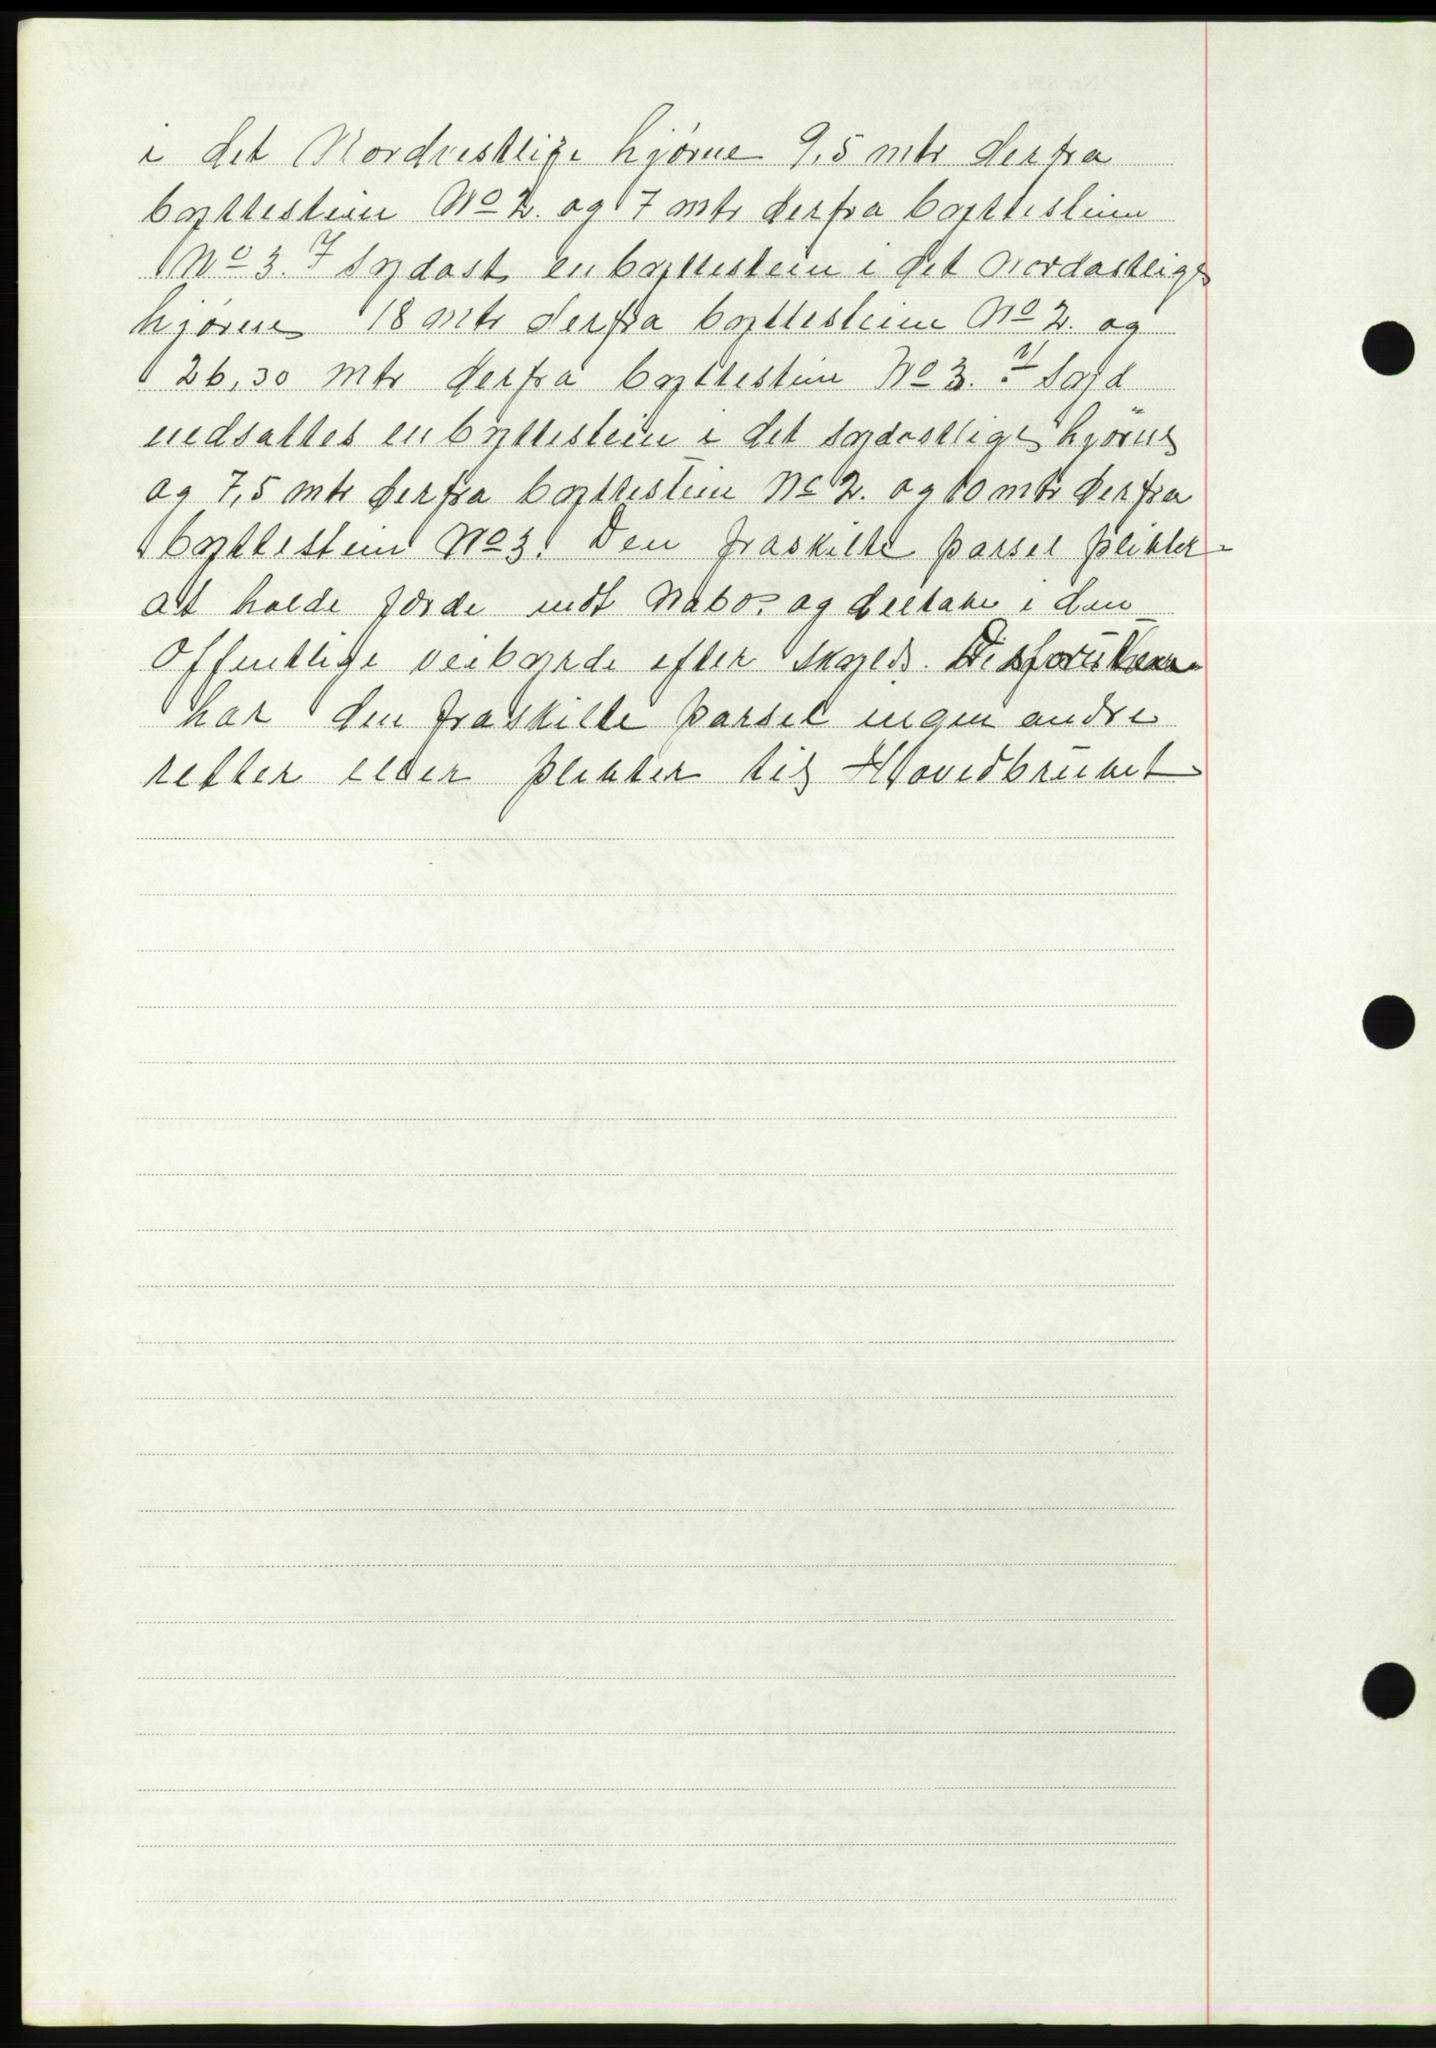 i det Nordvestlige hjørne 9,5 mtr derfra
byttestein No 2. og 7 mtr derfra byttestein
No 3. I Sydost en byttestein i det Nordostlige
hjørne 18 mtr derfra byttestein No 2. og
26,30 mtr derfra byttestein No 3. I Syd
nedsattes en byttestein i det sydostlige hjörne
og 7,5 mtr derfra byttestein No 2. og 10 mtr derfra
byttestein No 3. Den fraskilte parsel plikter
at holde jorde mot Nabo. og deltake i den
offentlige veibyrde efter skyld. Desforuten
har den fraskilte parsel ingen andre
retter eller plikter til Hovedbruket